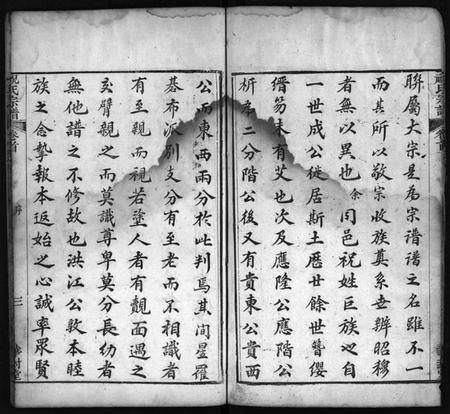 聨屬大宗是為宗譜譜之名雖不一
而其所以敬宗收族奠系世辨昭穆
者無以異也余同邑祝姓巨族也自
一世成公徙居斯土歷廿餘世簪纓
縉笏未有艾也次及應隆公應階公
析居二分階公後又有貴東公貴西
公而東西兩分於此判焉其間星羅
碁布派別支分有至老而不相識者
有至親而視若塗人者有覿面遇之
交臂親之而莫識尊卑莫分長幼者
無他譜之不修故也洪江公敦本睦
族之念摯報本返始之心誠率眾賢
祝氏宗譜
卷首
序
三